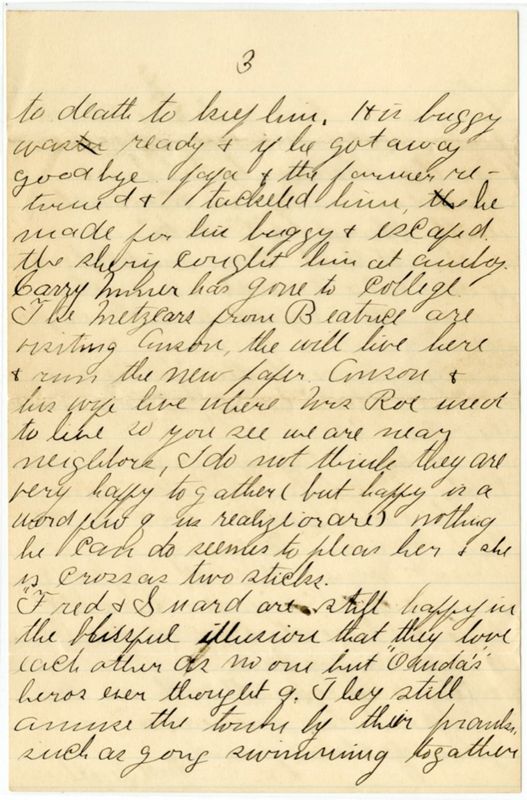 3
to death to keep him. His buggy
was ready & if he got away
goodbye. papa & the farmer re-
turned & tackeled him, he
made for his buggy & escaped.
the sherif cought him at amboy.
Carry Miner has gone to college.
The Metzcars from Beatrice are
visiting Anson, the will live here
& run the new paper. Anson &
his wife live where Mrs Roe used
to live so you see we are near
neighbors, I do not think they are
very happy togather (but happy is a
word few of us realize or are) nothing
he can do seems to pleas her & she
is cross as two sticks.
"Fred & are still happy in
the blissful illusion that they love
each other as no one but "Ouida's"
heros ever thought of. They still
amuse the town by their pranks.
such as gong swimming togather